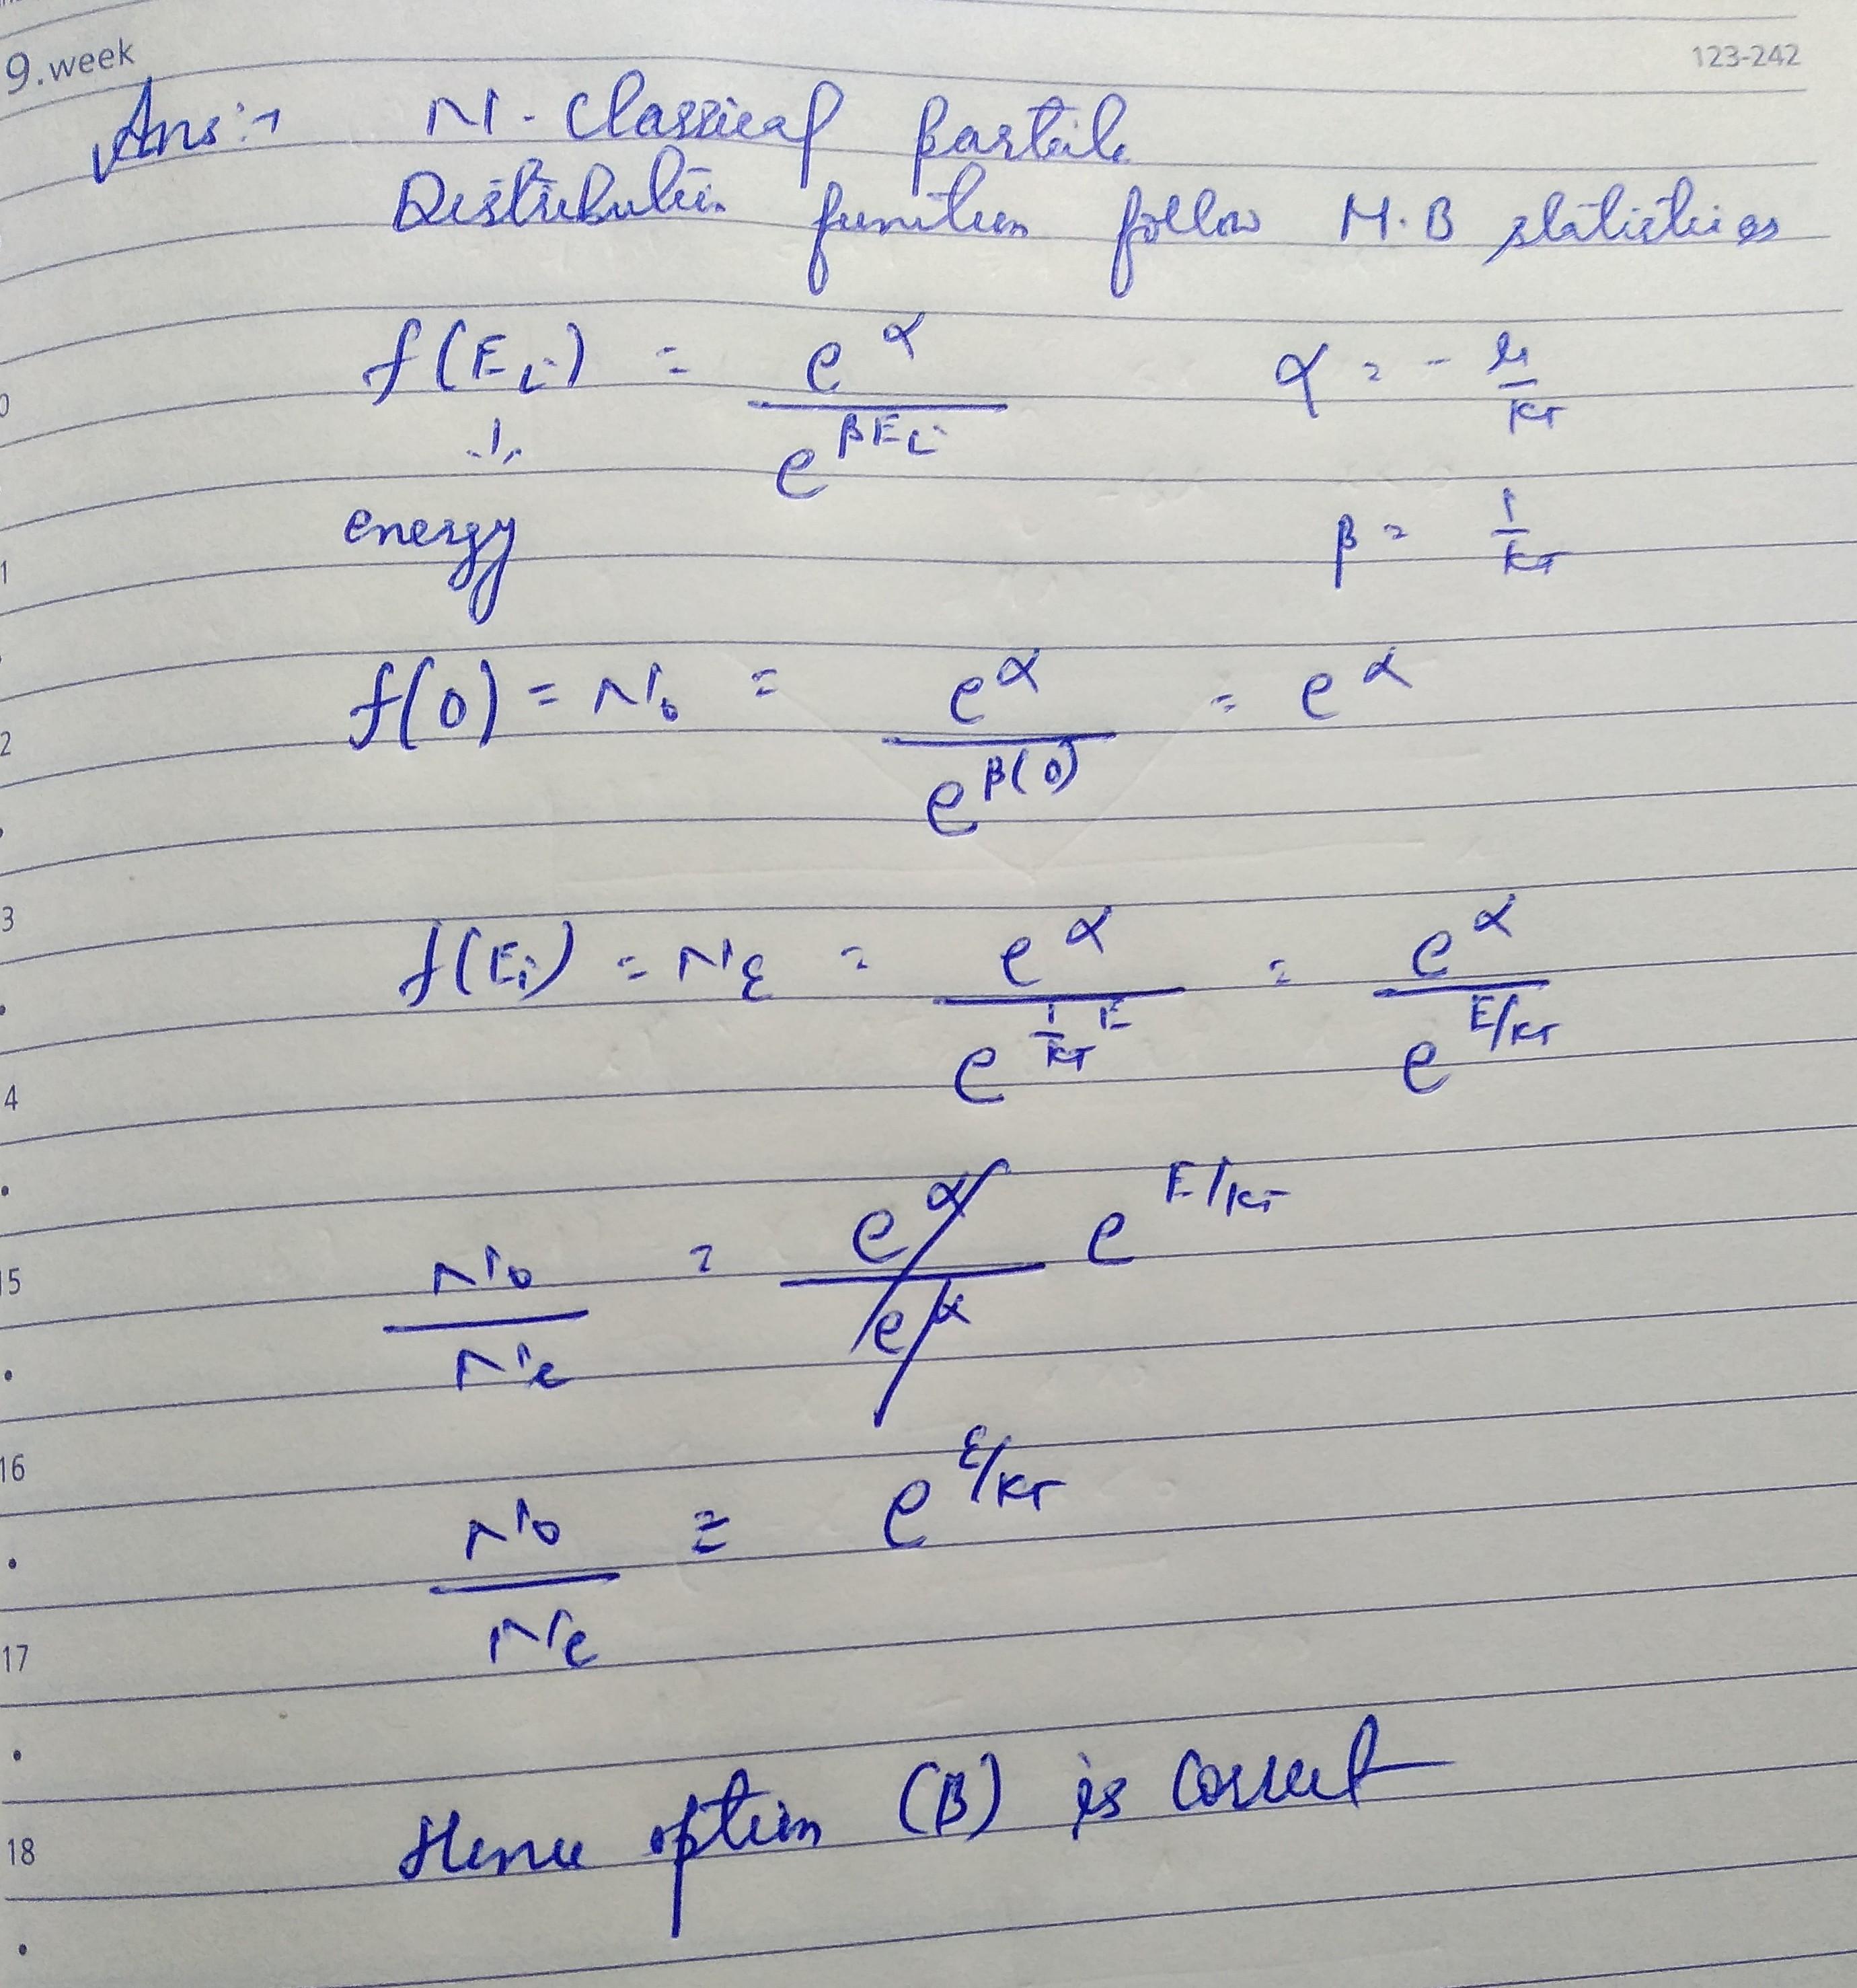 9.week
123-242
Ans:→ N-Classical particle
Distribution function follow M.B statistics
f(Ei) = e^α / e^βEi α = - μ/KT
↓
energy β = 1/KT
f(0) = N0 = e^α / e^β(0) = e^α
f(Ei) = Nε = e^α / e^(1/KT E) = e^α / e^E/KT
N0 / Nε = e^α / e^α e^E/KT
N0 / Nε = e^ε/KT
Hence option (B) is correct
1
2
3
4
15
16
17
18